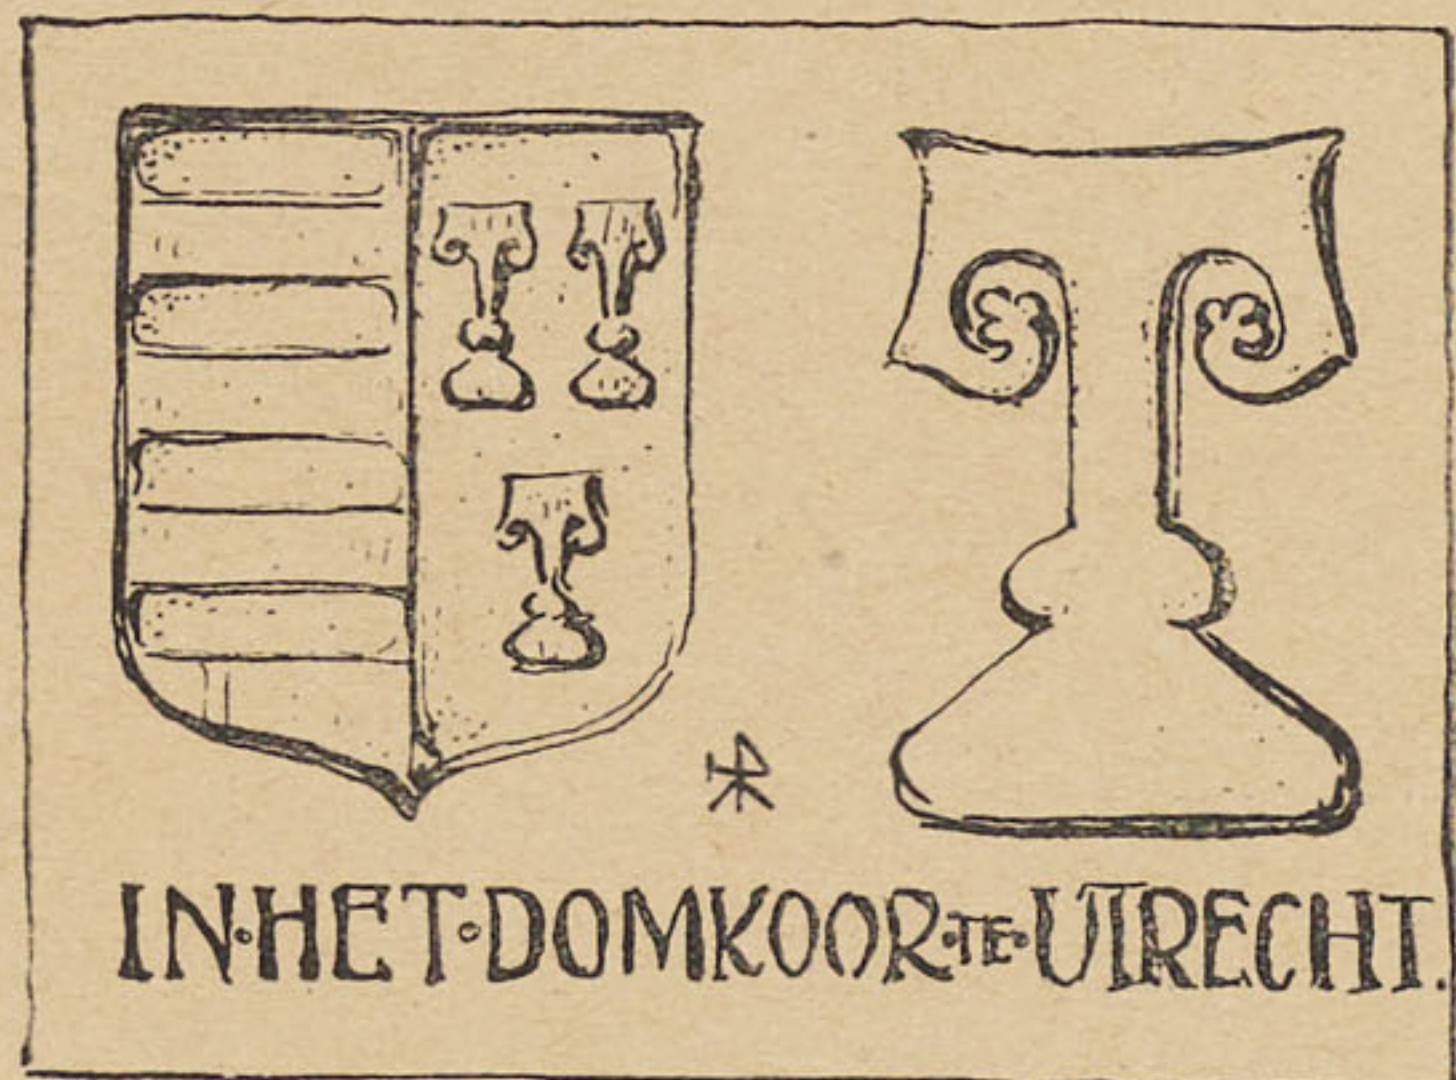 IN·HET·DOMKOOR·TE·UTRECHT.